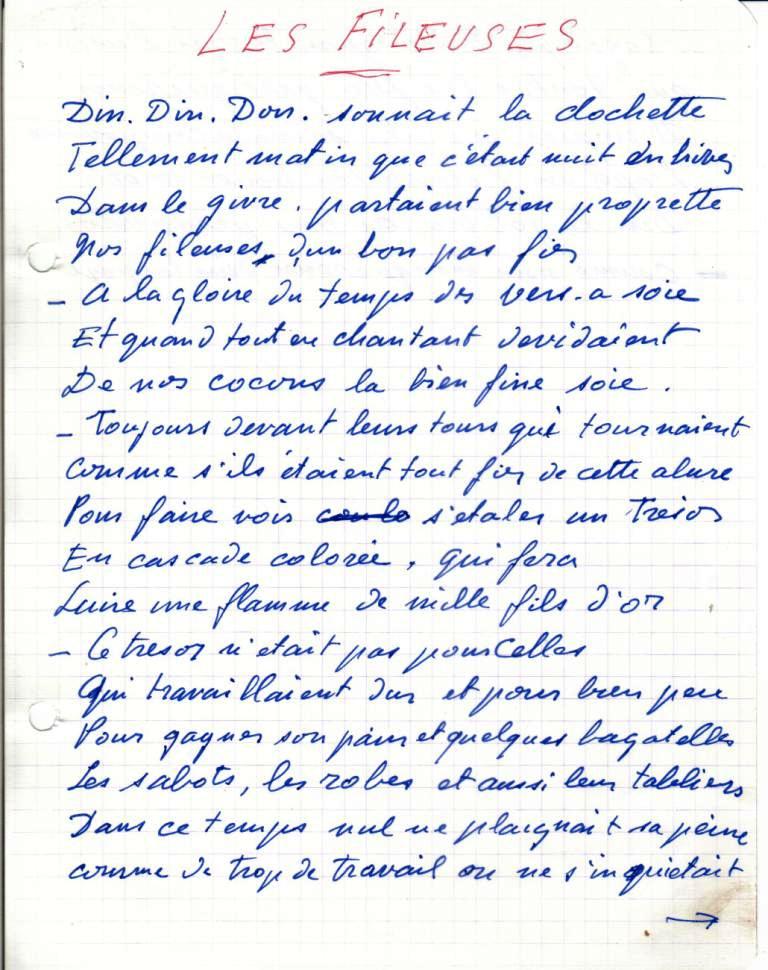 LES FiLEUSES
Din. Din. Don. sonnait la clochette
Tellement matin que c'était nuit en hiver
Dans le givre. partaient bien proprette
Nos fileuses, d'un bon pas fier
- A la gloire du temps des vers-a soie
Et quand tout en chantant devidaient
De nos cocons la bien fine soie.
- Toujours devant leurs tours qui tournaient
Comme s'ils étaient tout fier de cette alure
Pour faire voir s'etaler un Tresor
En cascade colorée, qui fera
Luire une flamme de mille fils d'or
- Ce tresor n'etait pas pour Celles
Qui travaillaient dur et pour bien peu
Pour gagner son pain et quelques bagatelles
Les sabots, les robes et aussi leur tabliers
Dans ce temps nul ne plaignait sa peine
comme de trop de travail on ne s'inquietait
→